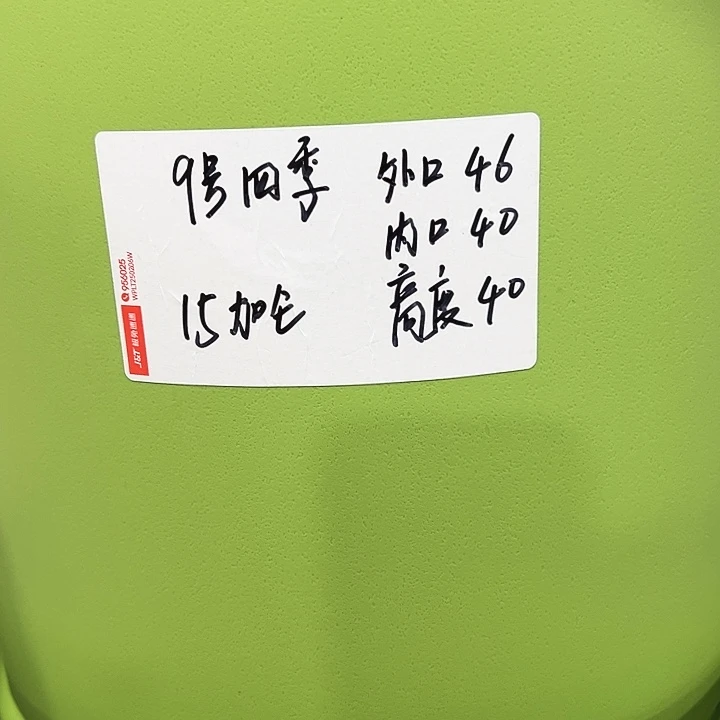 9号四季
外口 46
内口 40
15加仑
高度 40
956025
WPLT250206W
J&T 极兔速递